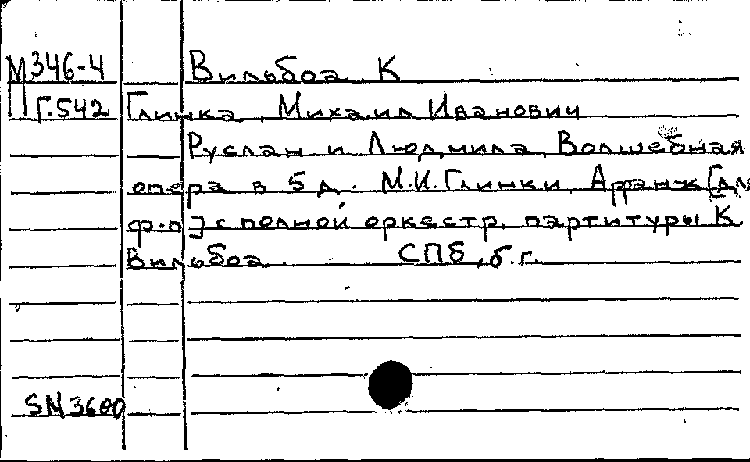 М346-4 Вильбоа К
Г.542 Глинка, Михаил Иванович
Руслан и Людмила. Волшебная
опера в 5 д. М.И.Глинки. Арранж [для
ф.п] с полной оркестр. партитуры К
Вильбоа. СПб, б.г.
SN3600